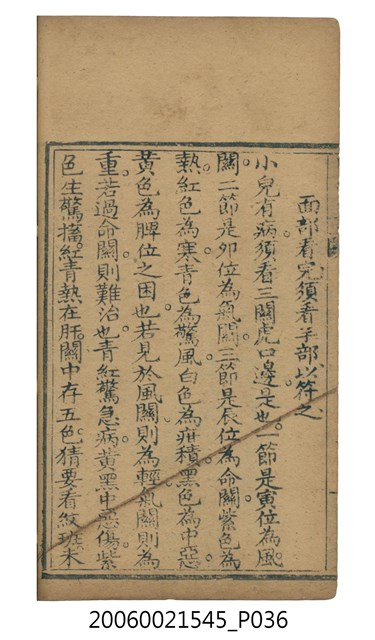 面部看完須看手部以符之
小兒有病須看三關虎口邊是也一節是寅位為風
關二節是卯位為氣關三節是辰位為命關紫色為
熱紅色為寒青色為驚風白色為疳積黑色為中惡
黃色為脾位之因也若見於風關則為輕氣關則為
重若過命關則難治也青紅驚急病黃黑中惡傷紫
色生驚搐紅青熱在肝關中存五色猜要看紋班未
20060021545_P036